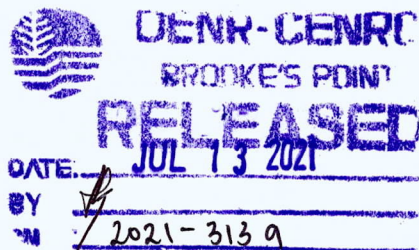 DENR-CENRO
BROOKE'S POINT
RELEASED
DATE: JUL 13 2021
BY
2021-3139